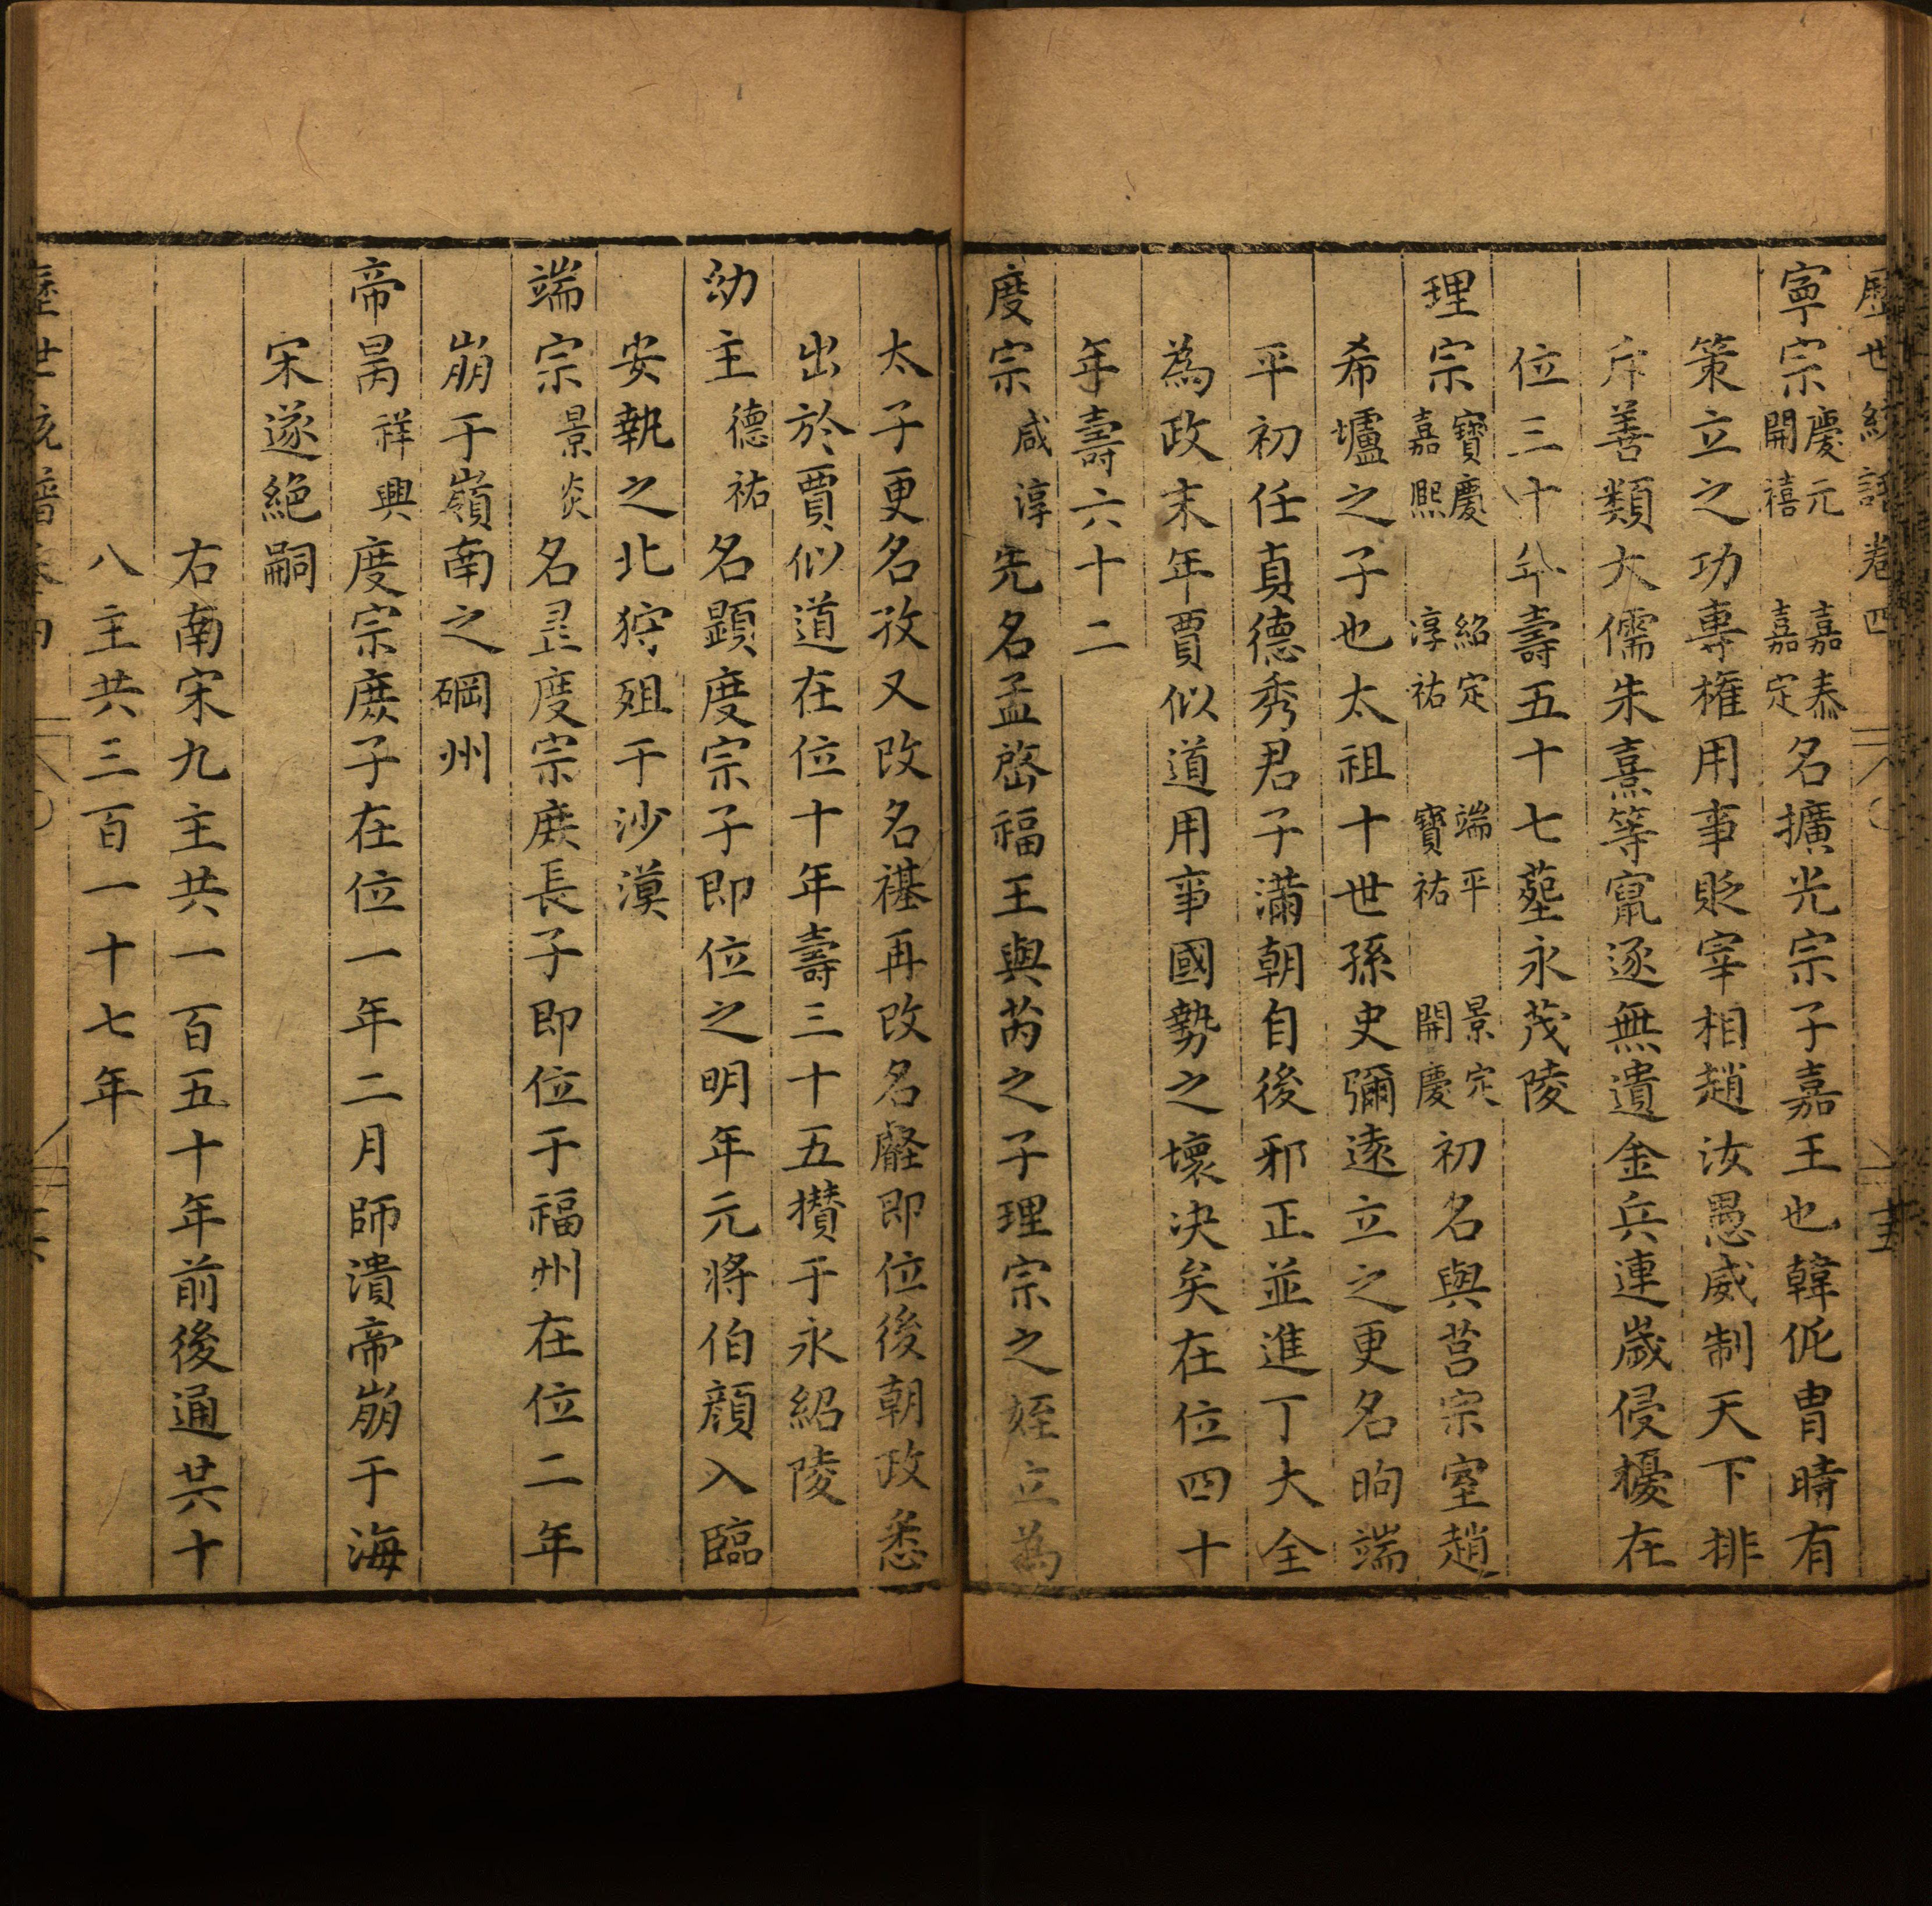 歷世統譜卷四 十五
寧宗慶元開禧嘉泰嘉定名擴光宗子嘉王也韓侂胄時有
策立之功專權用事貶宰相趙汝愚威制天下排
斥善類大儒朱熹等竄逐無遺金兵連歲侵擾在
位三十年壽五十七塟永茂陵
理宗寶慶嘉熙紹定淳祐端平寶祐景定開慶初名與莒宗室趙
希壚之子也太祖十世孫史彌遠立之更名昀端
平初任真德秀君子滿朝自後邪正並進丁大全
為政末年賈似道用事國勢之壞決矣在位四十
年壽六十二
度宗咸淳先名孟啓福王與芮之子理宗之姪立為
太子更名孜又改名禥再改名即位後朝政悉
出於賈似道在位十年壽三十五攅于永紹陵
幼主德祐名顕度宗子即位之明年元將伯顔入臨
安執之北狩殂于沙漠
端宗景炎名昰度宗庶長子即位于福州在位二年
崩于嶺南之碙州
帝昺祥興度宗庶子在位一年二月師潰帝崩于海
宋遂絕嗣
右南宋九主共一百五十年前後通共十
八主共三百一十七年
歷世統譜卷四